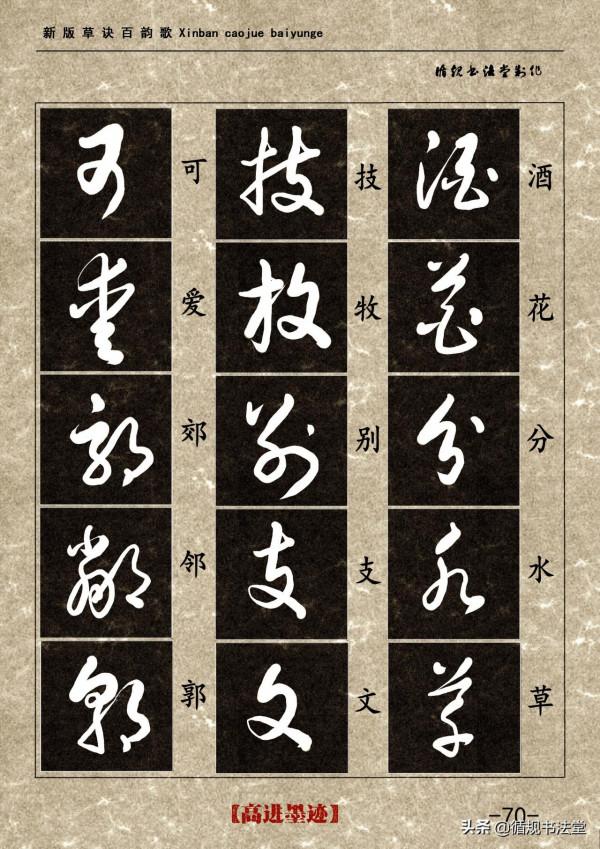 新版草诀百韵歌 Xinban caojue baiyunge
循规书法堂制作
酒花分水草
技牧别支文
可爱郊邻郭
【高进墨迹】
-70-
头条 @循规书法堂